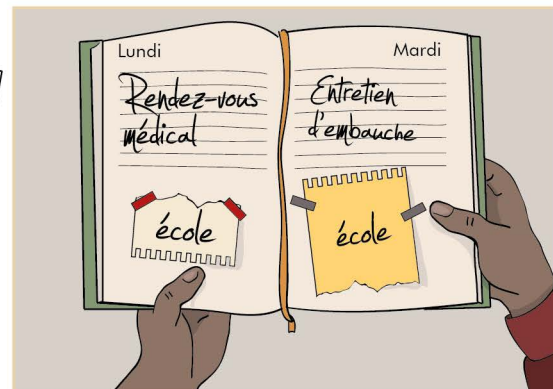 Lundi
Rendez-vous
médical
école
Mardi
Entretien
d'embauche
école